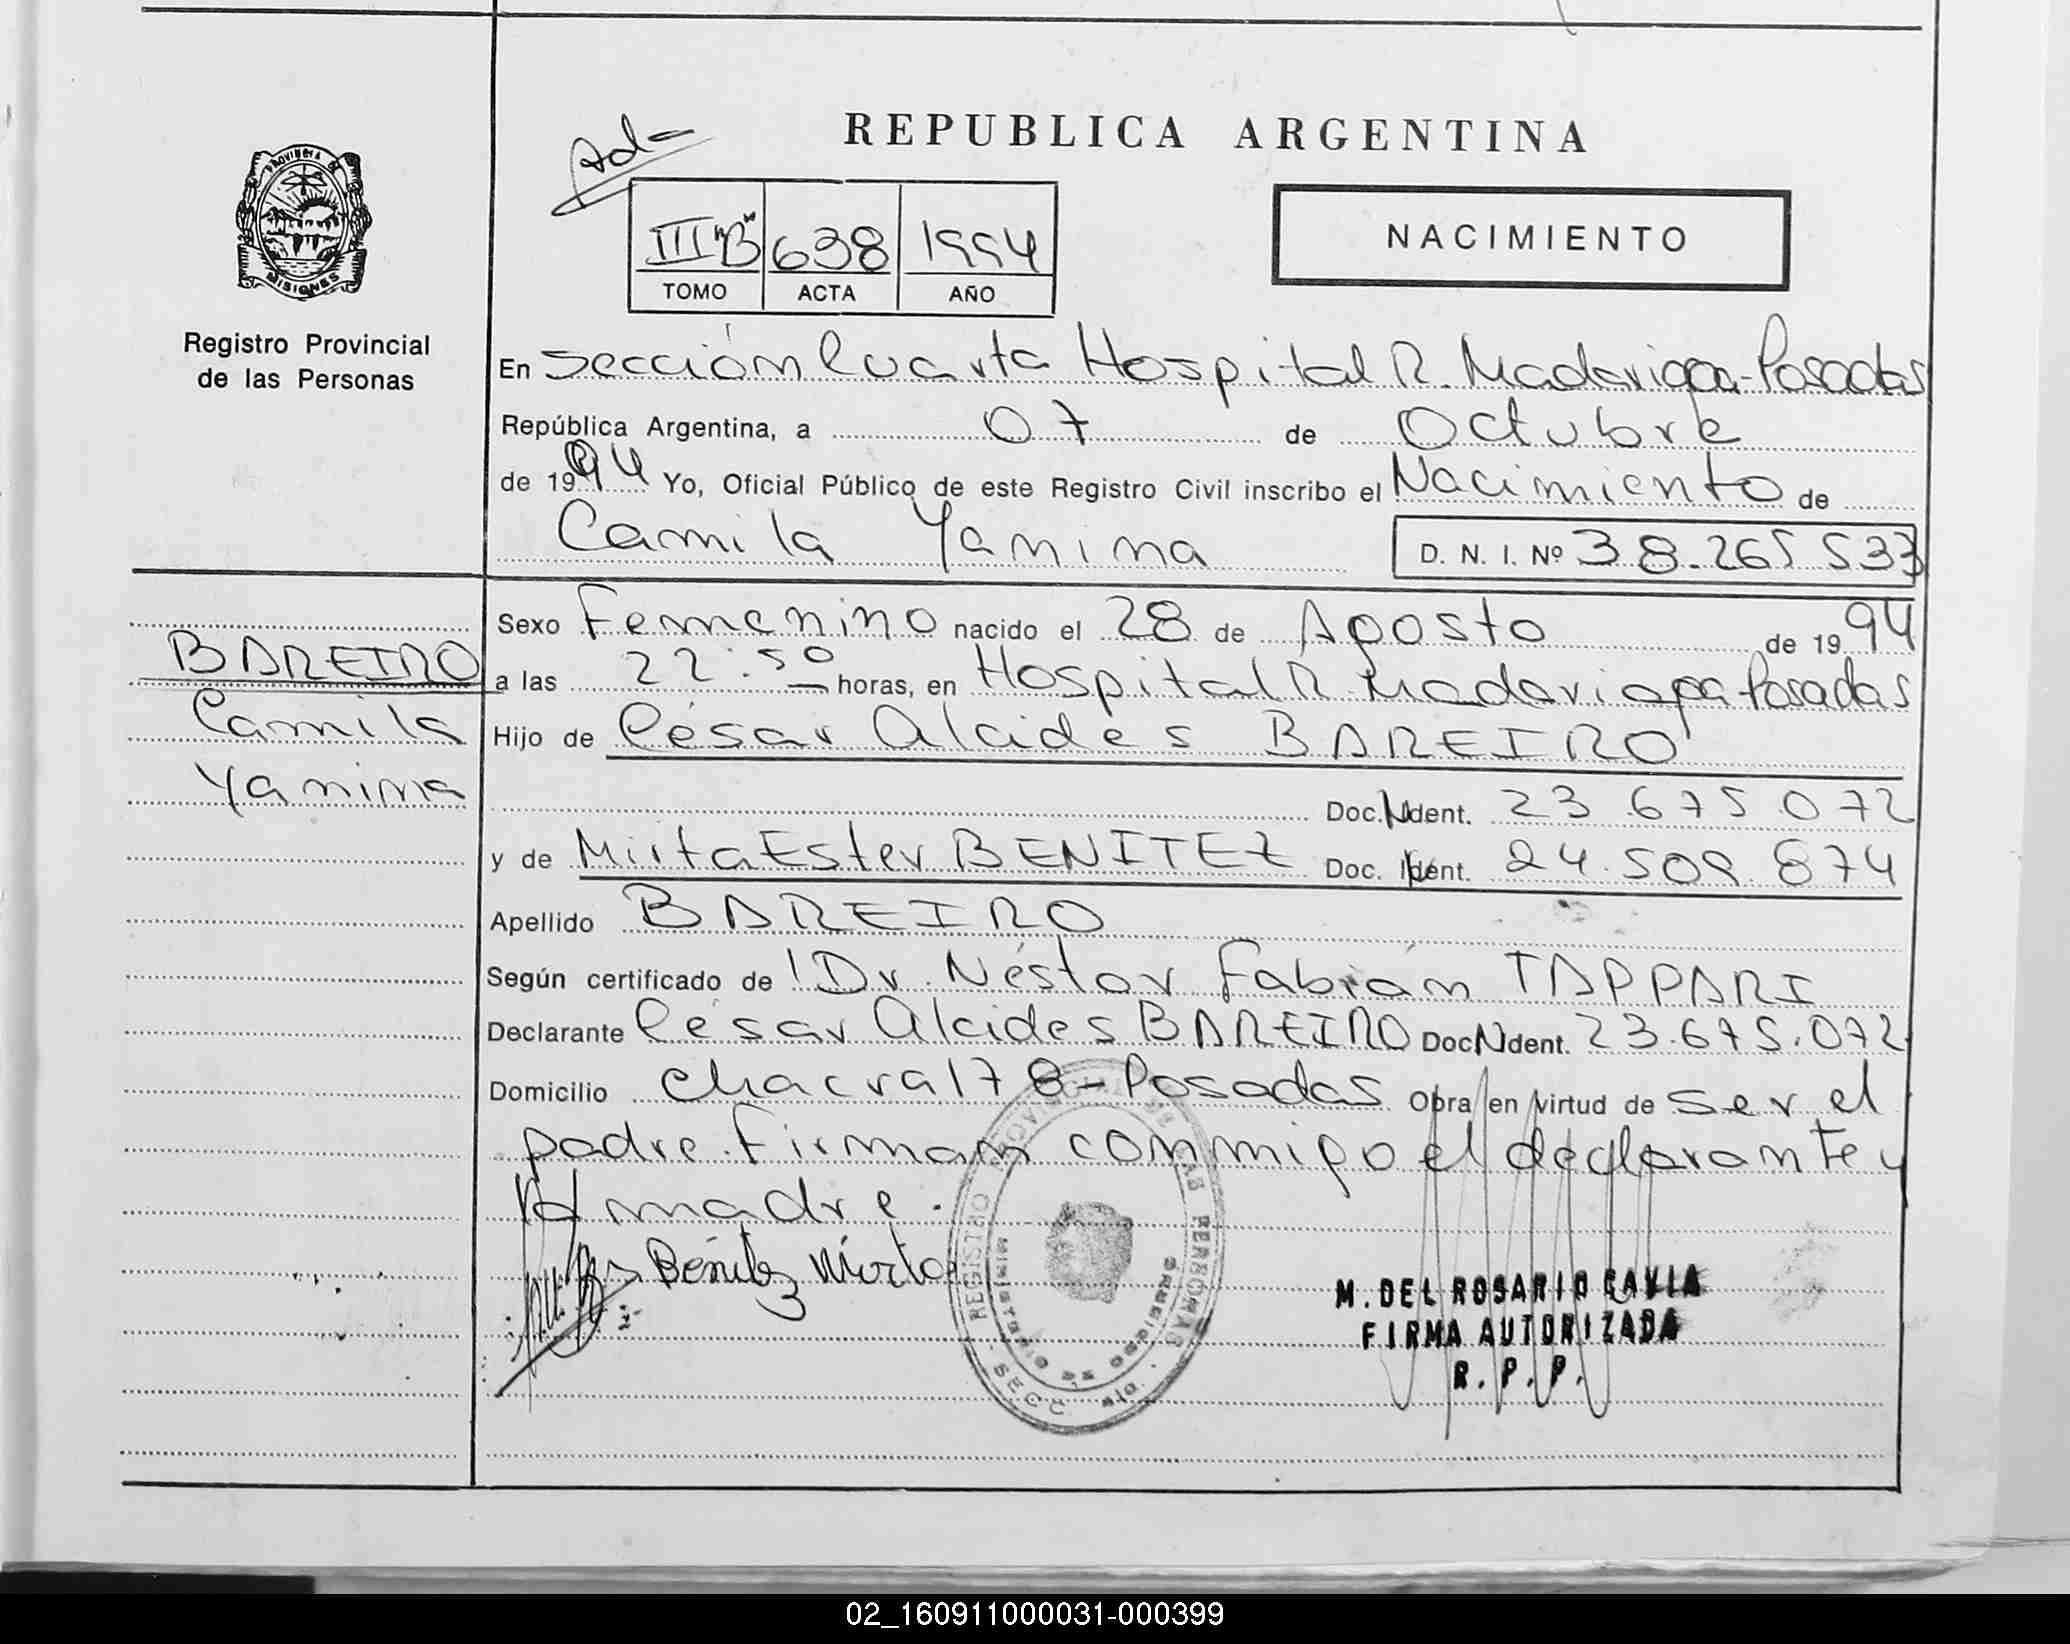 REPUBLICA ARGENTINA
Ad-
PROVINCIA DE
MISIONES
III "B" 638 1994
TOMO ACTA AÑO
NACIMIENTO
Registro Provincial
de las Personas
En Sección Cuarta Hospital R. Madariaga - Posadas
República Argentina, a 07 de Octubre
de 1994 Yo, Oficial Público de este Registro Civil inscribo el Nacimiento de
Camila Yanina D. N. I. Nº 38.265 533
Sexo Femenino nacido el 28 de Agosto de 1994
BAREIRO
Camila
Yanina
a las 22:50 horas, en Hospital R. Madariaga Posadas
Hijo de César Alcides BAREIRO
Doc. Ident. 23 675 072
y de Mirta Ester BENITEZ Doc. Ident. 24.509.874
Apellido BAREIRO
Según certificado de Dr. Néstor Fabián TAPPARI
Declarante César Alcides BAREIRO Doc Ident. 23.675.072
Domicilio Chacra 178 - Posadas Obra en virtud de ser el
padre. Firman conmigo el declarante y
la madre.
Benitez Mirta
REGISTRO PROVINCIAL DE LAS PERSONAS
MINISTERIO DE GOBIERNO
SECC.
M. DEL ROSARIO GAVIA
FIRMA AUTORIZADA
R. P. P.
02_160911000031-000399